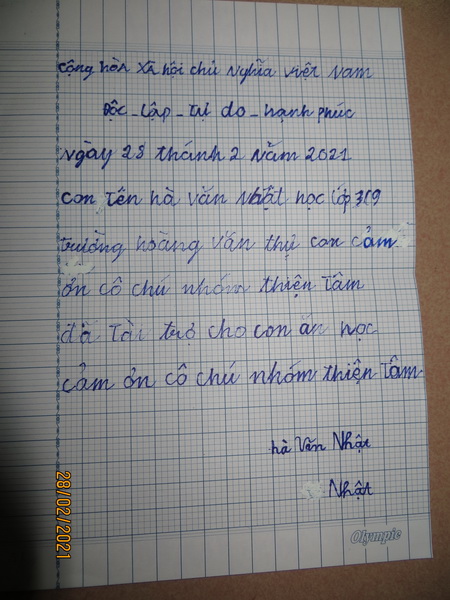 cộng hòa xã hội chủ nghĩa việt nam
Độc_lập_tự do_hạnh phúc
ngày 28 thánh 2 năm 2021
con tên hà văn nhật học lớp 3/9
trường hoàng văn thụ con cảm
ơn cô chú nhóm thiện tâm
đã tài trợ cho con ăn học
cảm ơn cô chú nhóm thiện tâm
hà văn Nhật
Nhật
Olympic
28/02/2021